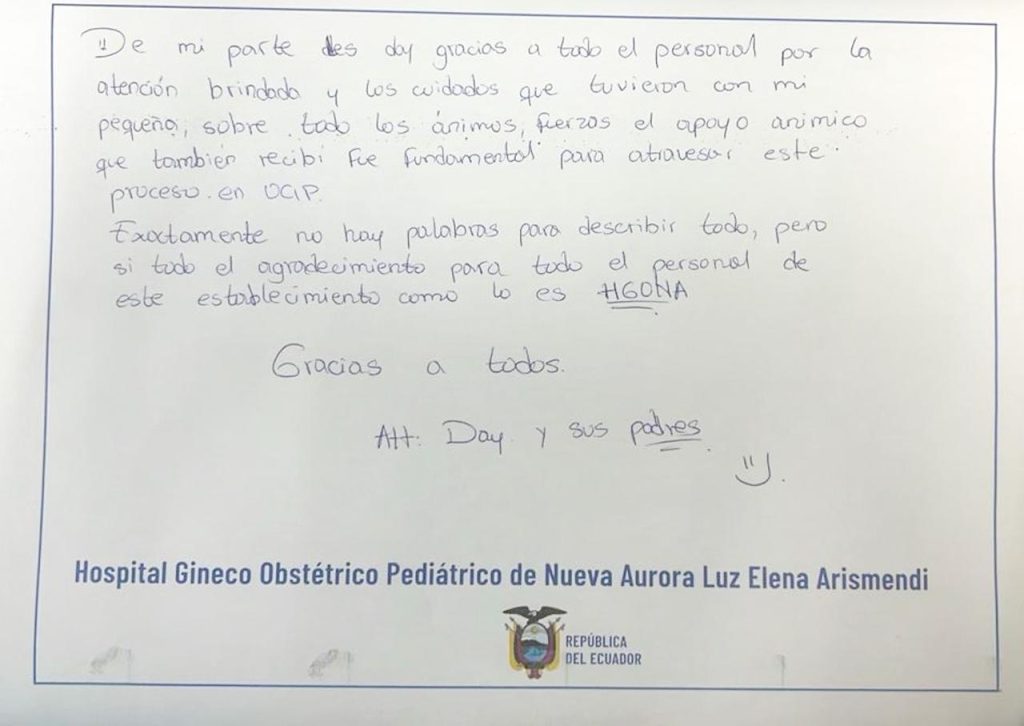 De mi parte les doy gracias a todo el personal por la
atención brindada y los cuidados que tuvieron con mi
pequeña, sobre todo los ánimos, fuerzas el apoyo animico
que también recibí fue fundamental para atravesar este
proceso en UCIP.
Exactamente no hay palabras para describir todo, pero
si todo el agradecimiento para todo el personal de
este establecimiento como lo es HGONA
Gracias a todos.
Att: Day y sus padres
Hospital Gineco Obstétrico Pediátrico de Nueva Aurora Luz Elena Arismendi
REPÚBLICA
DEL ECUADOR